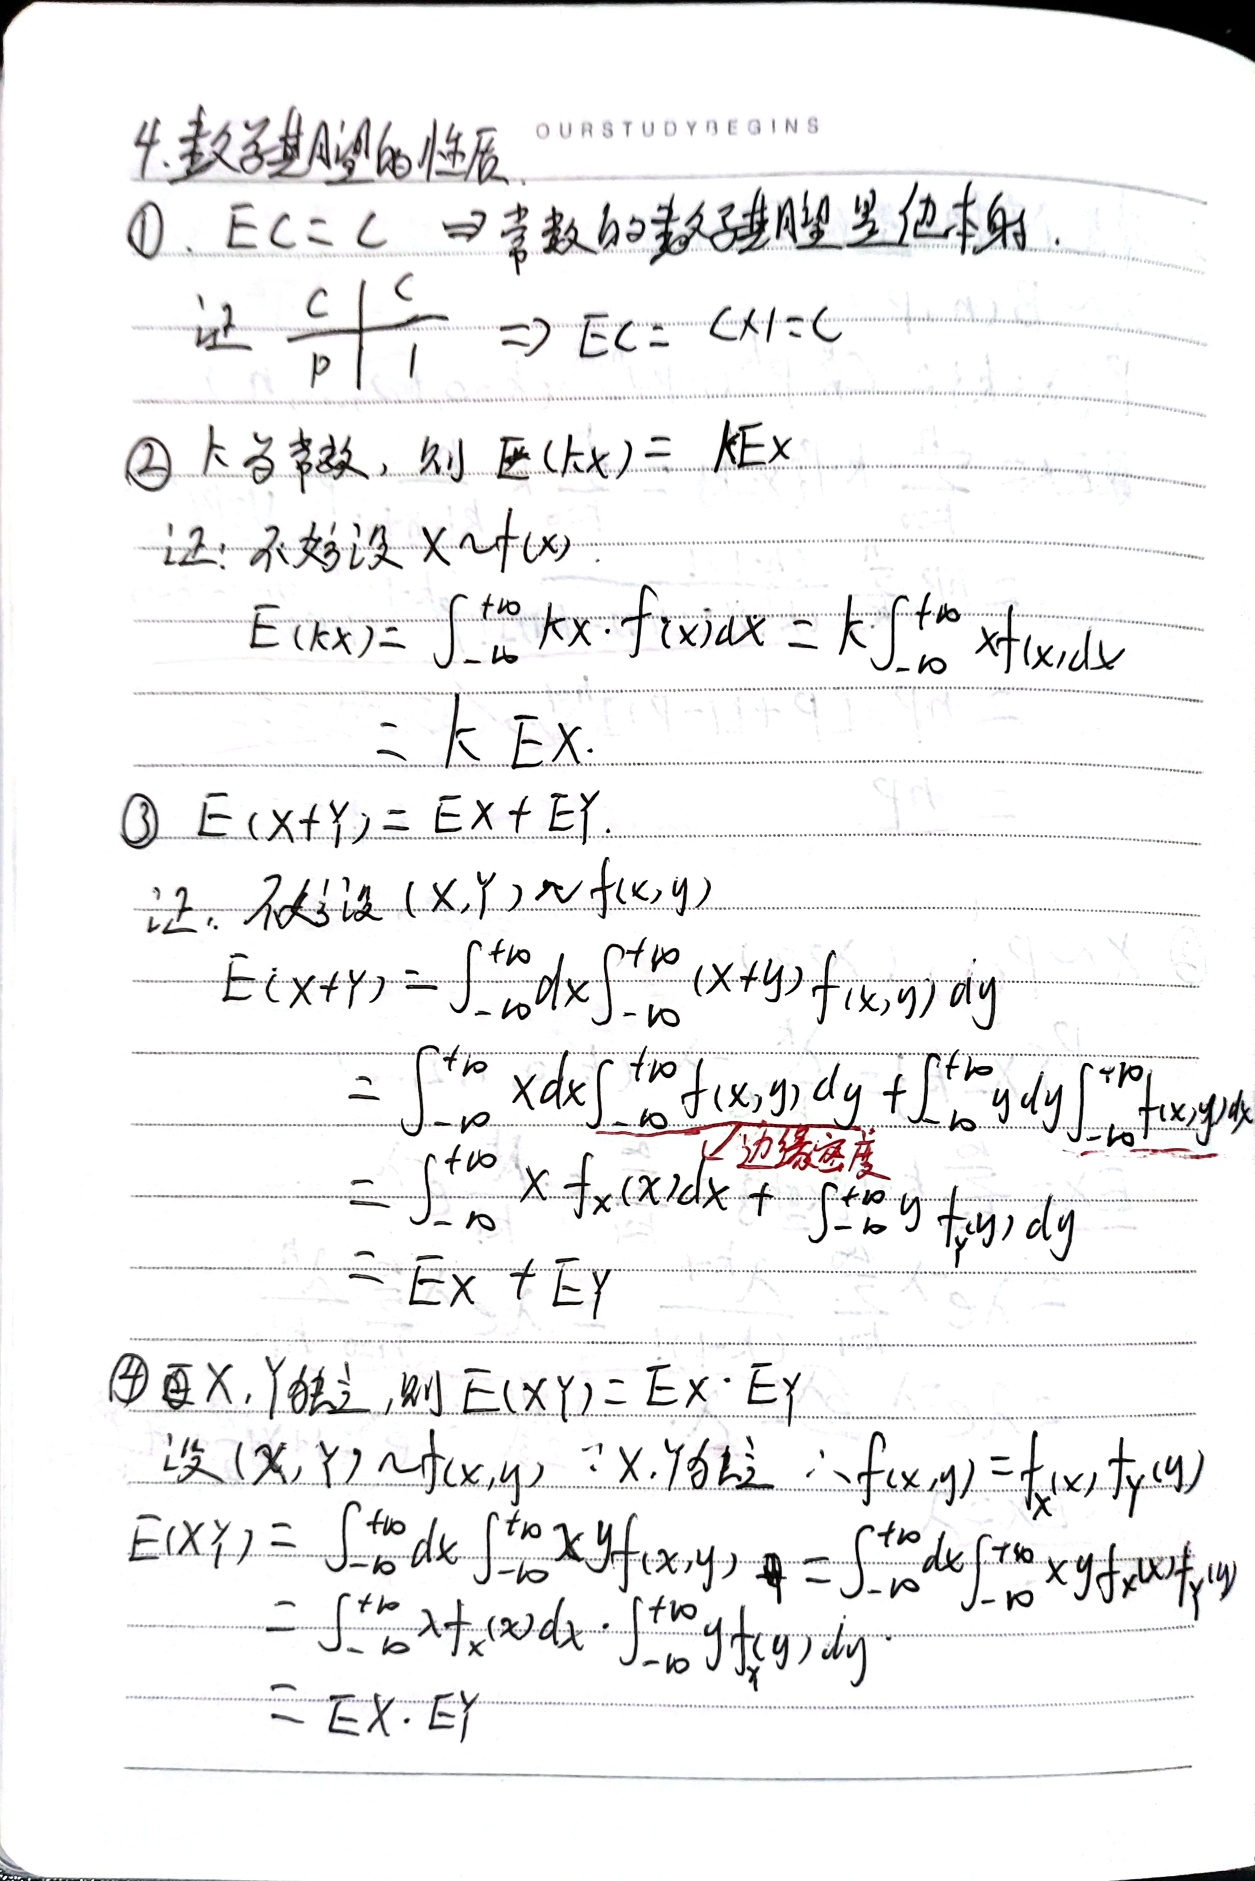 OURSTUDYBEGINS
4.数学期望的性质.
①. EC=C ⇒常数的数学期望是他本身.
证 C | C
P | 1 ⇒ EC= C×1=C
② k为常数, 则 E(kx)= kEx
证: 不妨设 X~f(x).
E(kx)= ∫_{-∞}^{+∞} kx·f(x)dx = k·∫_{-∞}^{+∞} xf(x)dx
= k EX.
③ E(X+Y)= EX+EY.
证: 不妨设 (X,Y)~f(x,y)
E(X+Y)=∫_{-∞}^{+∞}dx∫_{-∞}^{+∞}(x+y)f(x,y)dy
=∫_{-∞}^{+∞}xdx∫_{-∞}^{+∞}f(x,y)dy+∫_{-∞}^{+∞}ydy∫_{-∞}^{+∞}f(x,y)dx
↙边缘密度
=∫_{-∞}^{+∞} x f_X(x)dx + ∫_{-∞}^{+∞} y f_Y(y)dy
= EX + EY
④ X,Y独立,则E(XY)=EX·EY
设(X,Y)~f(x,y) ∵X.Y独立 ∴f(x,y)=f_X(x)f_Y(y)
E(XY)=∫_{-∞}^{+∞}dx∫_{-∞}^{+∞}xyf(x,y) =∫_{-∞}^{+∞}dx∫_{-∞}^{+∞}xyf_X(x)f_Y(y)
=∫_{-∞}^{+∞}xf_X(x)dx·∫_{-∞}^{+∞}yf_Y(y)dy.
= EX·EY